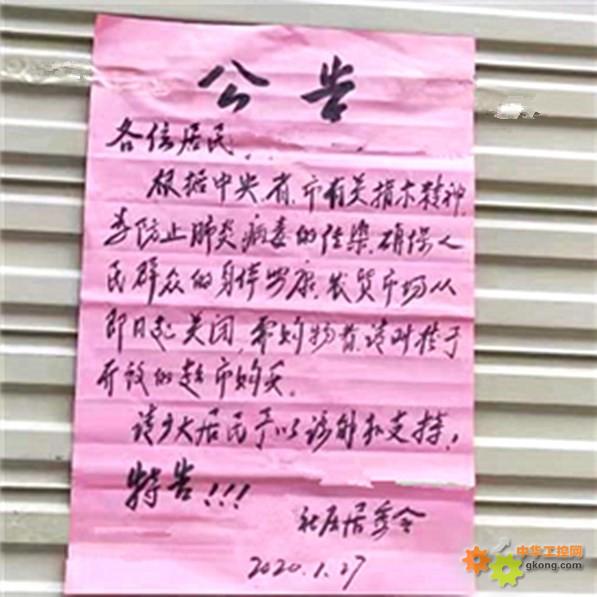 公告
各位居民
根据中央、省、市有关指示精神,
为防止肺炎病毒的传染,确保人
民群众的身体安康,农贸市场从
即日起关闭,需购物者,请到
开放的超市购买。
请广大居民予以谅解和支持,
特告!!!
社区居委会
2020.1.27
中华工控网
gkong.com